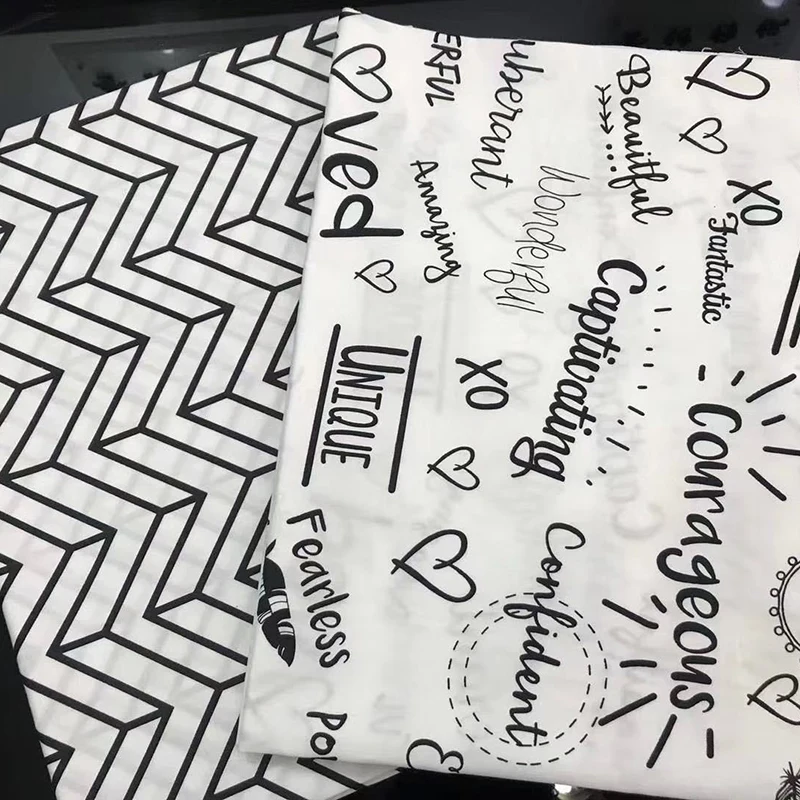 XO
Fantastic
Courageous
Beauitful
Captivating
uberant
Wonderful
Confident
ERFUL
Amazing
XO
&
ved
UNIQUE
Fearless
Po